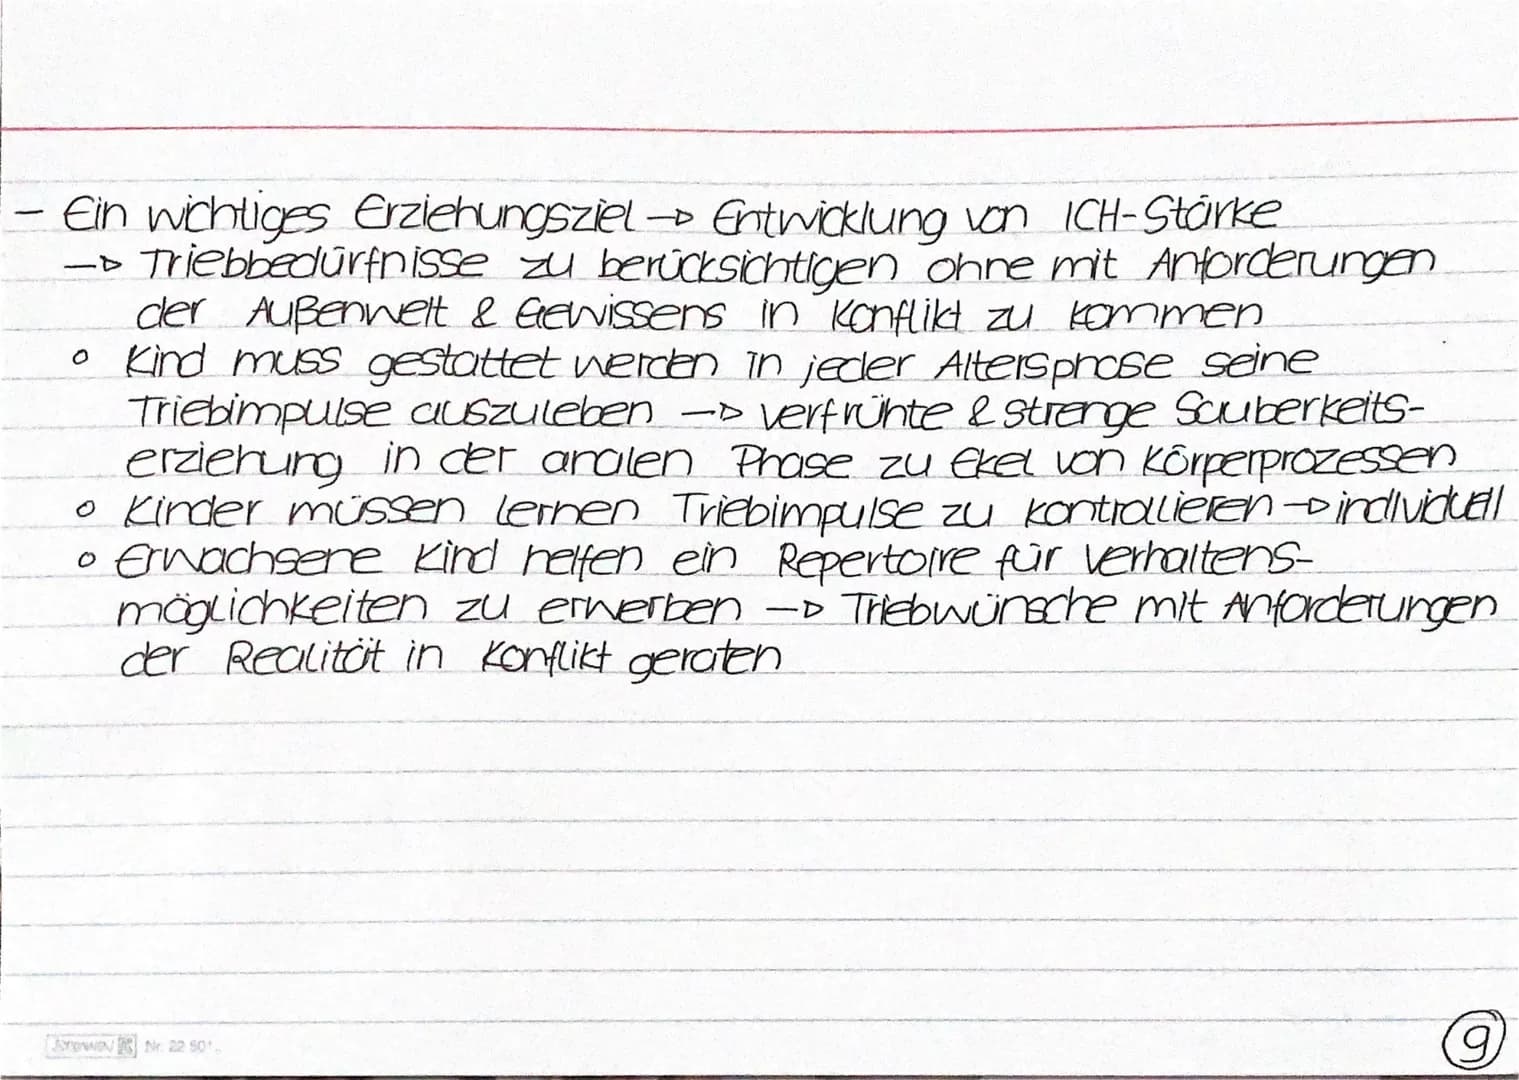 - Ein wichtiges Erziehungsziel → Entwicklung von ICH-Stärke
→ Triebbedürfnisse zu berücksichtigen ohne mit Anforderungen
der Außenwelt & Gewissens in Konflikt zu kommen
o Kind muss gestattet werden in jeder Altersphase seine
Triebimpulse auszuleben → verfrühte & strenge Sauberkeits-
erziehung in der analen Phase zu Ekel von Körperprozessen
o Kinder müssen lernen Triebimpulse zu kontrollieren → individuell
o Erwachsene Kind helfen ein Repertoire für Verhaltens-
möglichkeiten zu erwerben → Triebwünsche mit Anforderungen
der Realität in Konflikt geraten
Nr. 22 501
9